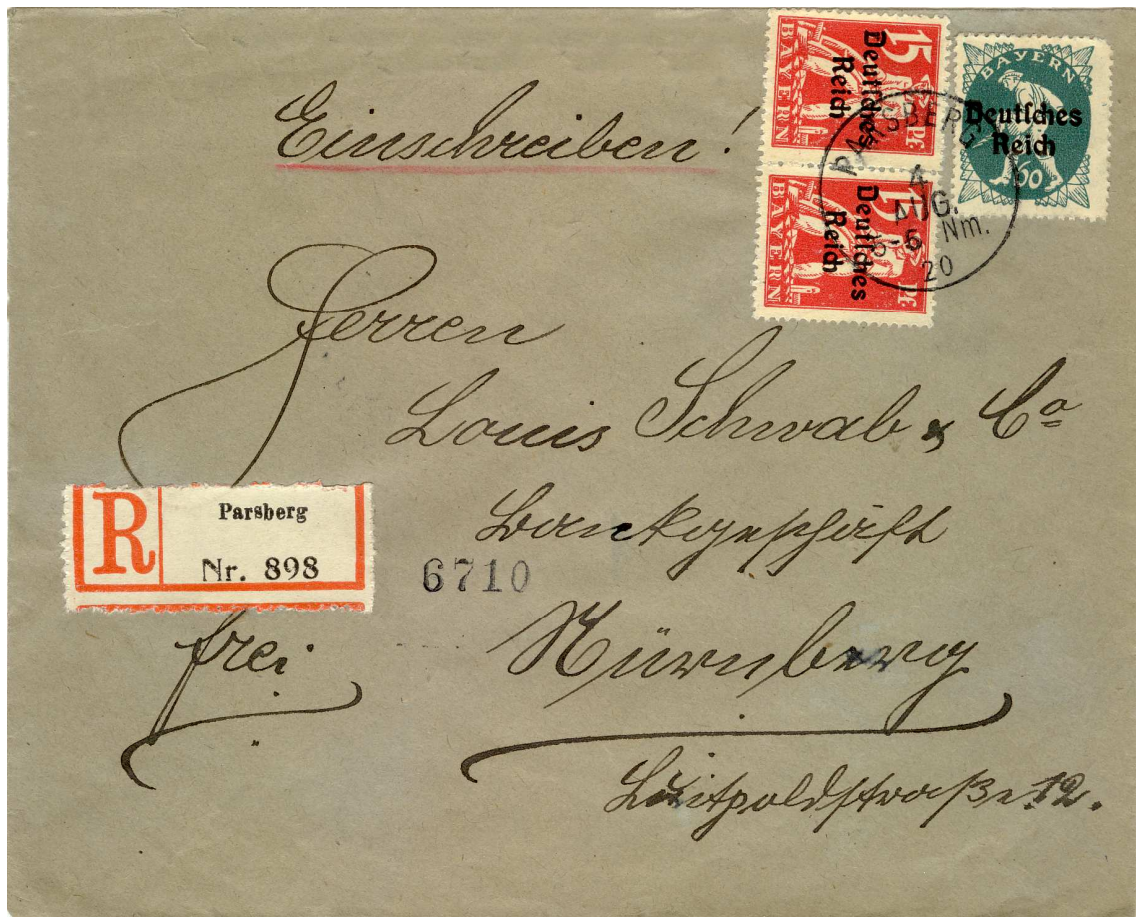 Einschreiben!
15 Pf
BAYERN
Deutsches
Reich
15 Pf
BAYERN
Deutsches
Reich
BAYERN
Deutsches
Reich
60
PARSBERG
4
AUG.
5-6 Nm.
20
Herren
Louis Schwab & Co
Bankgeschäft
R
Parsberg
Nr. 898
6710
frei
Nürnberg
Luitpoldstraße 12.